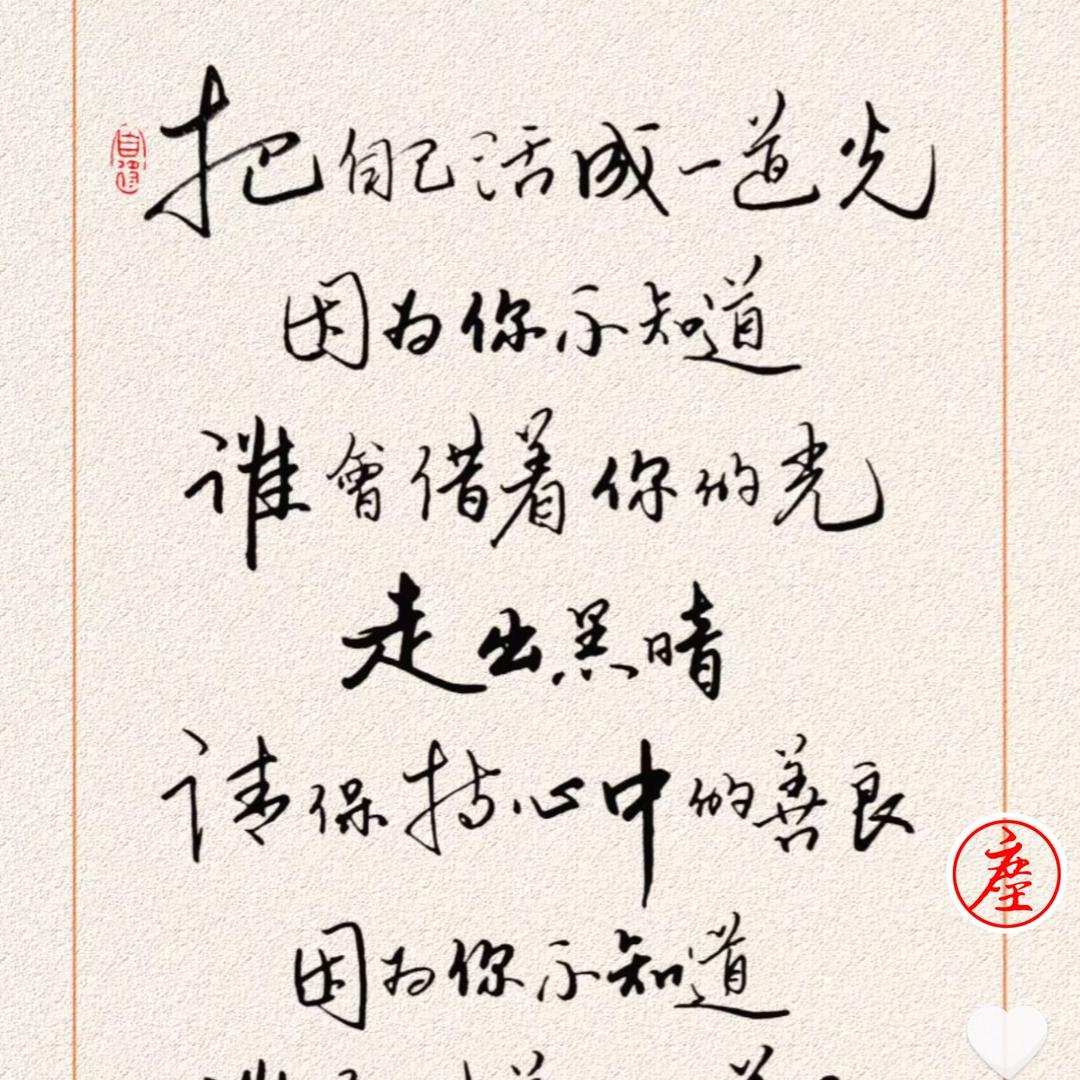 把自己活成一道光
因为你不知道
谁會借着你的光
走出黑暗
请保持心中的善良
塵
因为你不知道